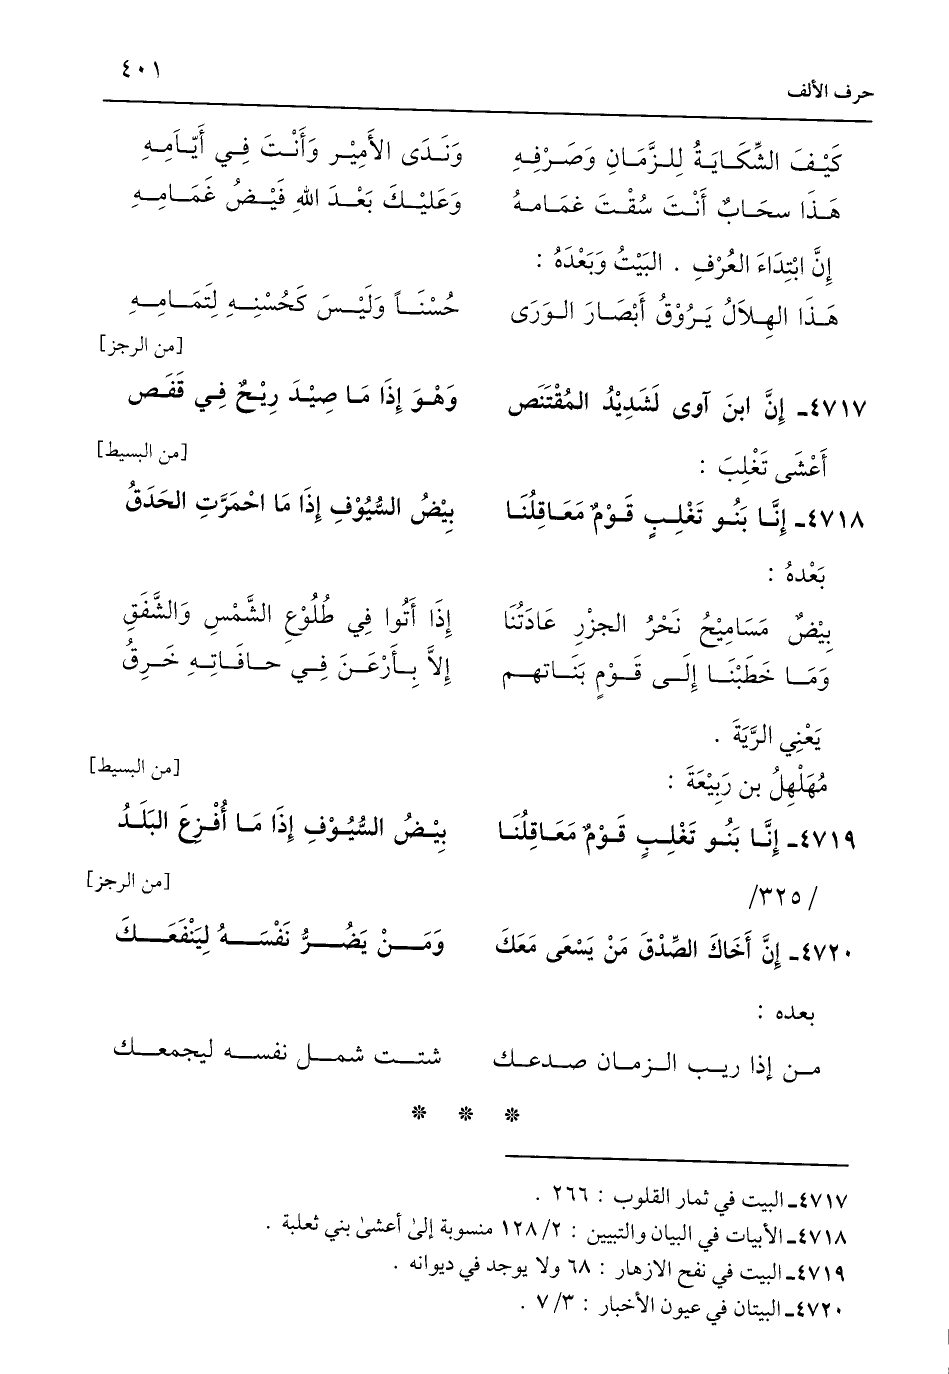 ٤٠١
حرف الألف
كَيْفَ الشِّكَايَةُ لِلزَّمَانِ وَصَرْفِهِ وَنَدَى الأَمِيْرِ وَأَنْتَ فِي أَيَّامِهِ
هَذَا سحَابٌ أَنْتَ سُقْتَ غمَامهُ وَعَلَيْكَ بَعْدَ اللهِ فَيْضُ غَمَامِهِ
إِنَّ ابْتِدَاءَ العُرْفِ . البَيْتُ وَبَعْدَهُ :
هَذَا الهِلاَلُ يَرُوْقُ أَبْصَارَ الوَرَى حُسْنَاً وَلَيْسَ كَحُسْنِهِ لِتَمَامِهِ
[من الرجز]
٤٧١٧ـ إِنَّ ابنَ آوى لَشَدِيْدُ المُقْتَنَص وَهْوَ إِذَا مَا صِيْدَ رِيْحٌ فِي قَفَص
[من البسيط]
أَعْشَى تَغْلِبَ :
٤٧١٨ـ إِنَّا بَنُو تَغْلِبٍ قَوْمٌ مَعَاقِلُنَا بِيْضُ السُّيُوْفِ إِذَا مَا احْمَرَّتِ الحَدَقُ
بَعْدهُ :
بِيْضٌ مَسَامِيْحُ نَحْرُ الجزْرِ عَادَتُنَا إِذَا أَتُوا فِي طُلُوْعِ الشَّمْسِ وَالشَّفَقِ
وَمَا خَطَبْنَا إِلَى قَوْمٍ بَنَاتهم إِلاَّ بِأَرْعَنَ فِي حافَاتِهِ خَرِقُ
يَعْنِي الرَّيَةَ .
[من البسيط]
مُهَلْهِلُ بن رَبِيْعَةَ :
٤٧١٩ـ إِنَّا بَنُو تَغْلِبٍ قَوْمٌ مَعَاقِلُنَا بِيْضُ السُّيُوْفِ إِذَا مَا أُفْزِعَ البَلَدُ
[من الرجز]
/٣٢٥/
٤٧٢٠ـ إِنَّ أَخَاكَ الصِّدْقَ مَنْ يَسْعَى مَعَكَ وَمَنْ يَضُرُّ نَفْسَهُ لِيَنْفَعَكَ
بعده :
من إذا ريب الزمان صدعك شتت شمل نفسه ليجمعك
* * *
٤٧١٧ـ البيت في ثمار القلوب : ٢٦٦ .
٤٧١٨ـ الأبيات في البيان والتبيين : ١٢٨/٢ منسوبة إلىٰ أعشىٰ بني ثعلبة .
٤٧١٩ـ البيت في نفح الازهار : ٦٨ ولا يوجد في ديوانه .
٤٧٢٠ـ البيتان في عيون الأخبار : ٧/٣ .